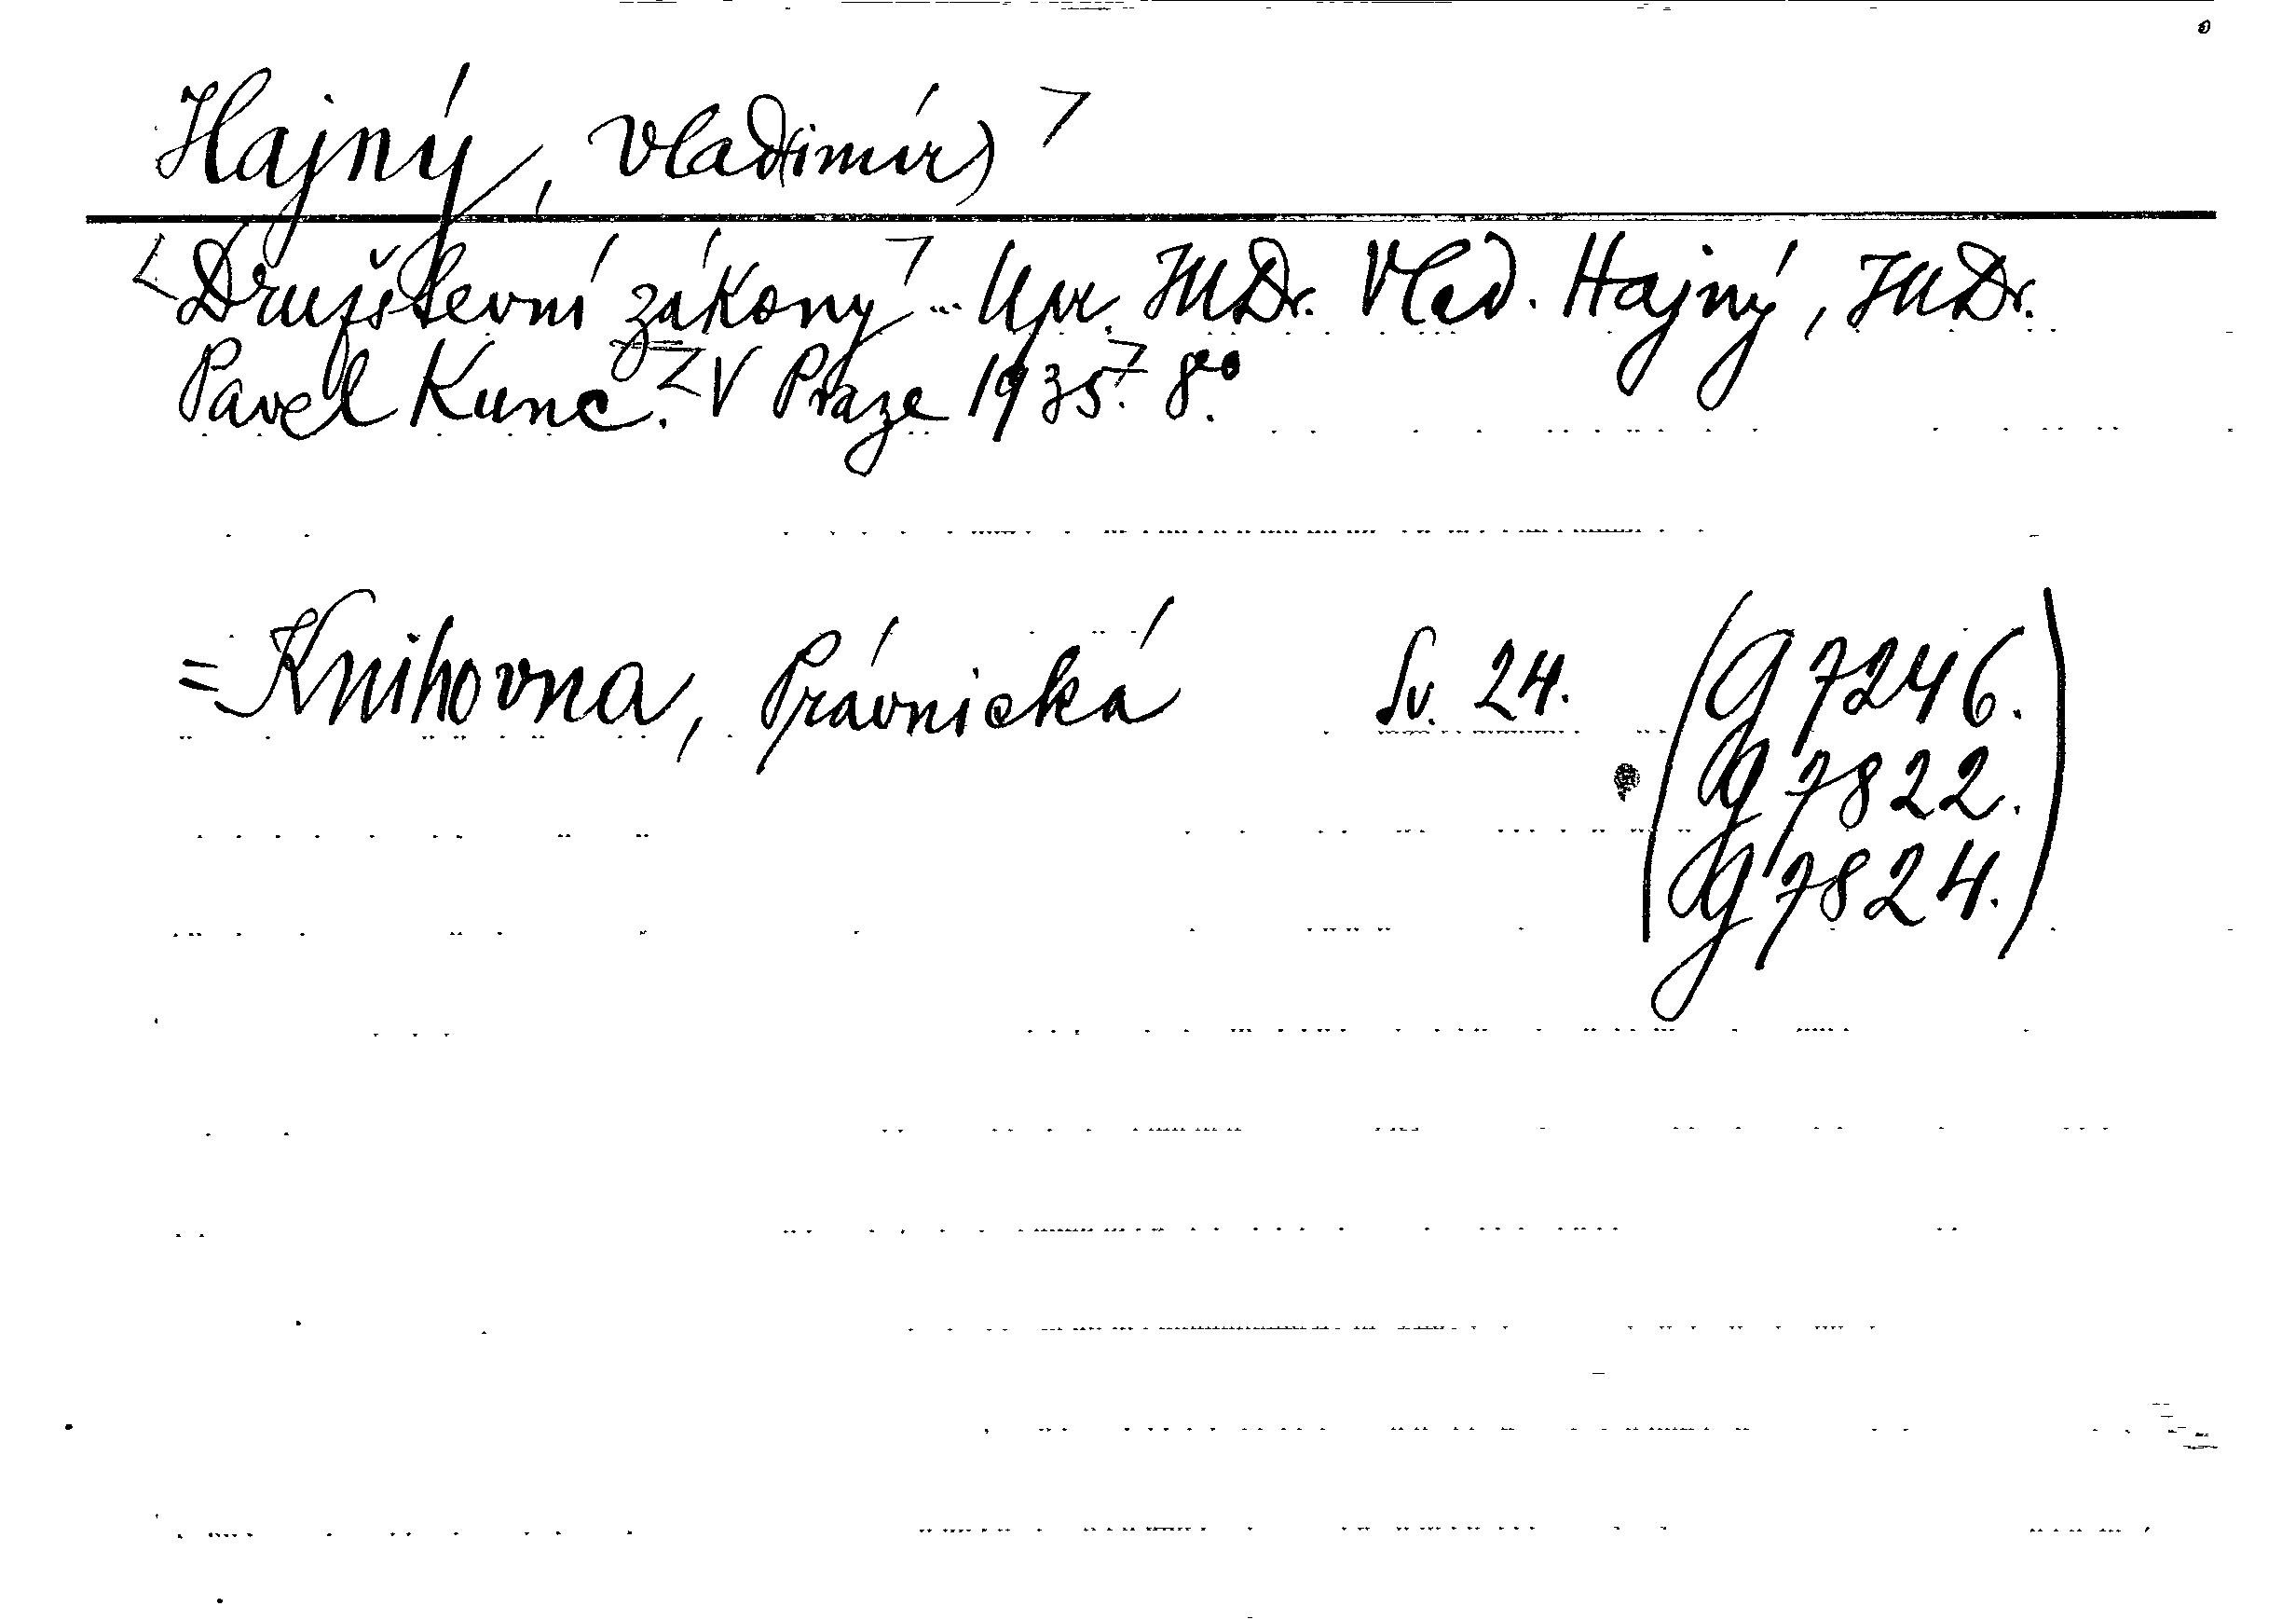 Hajný, Vlad(imír) >
<Družstevní zákony> ... Upr. JUDr. Vlad. Hajný, JUDr.
Pavel Kunc. <V Praze 1935.> 8°.
= Knihovna, Právnická Sv. 24. (G 7246.
G 7822.
G 7824.)